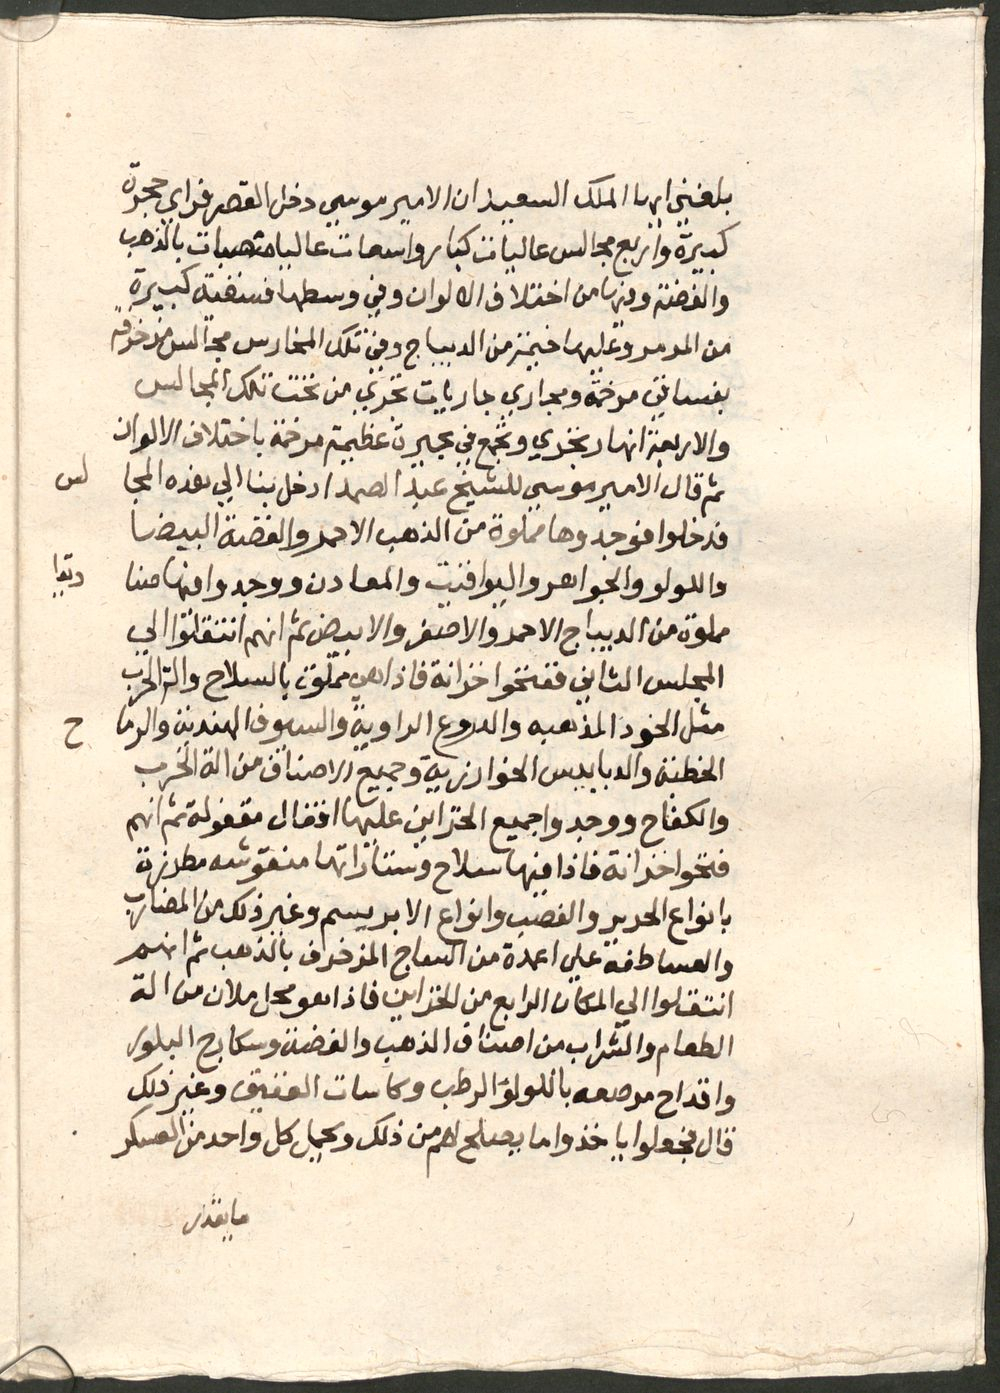 بلغني ايها الملك السعيد ان الامير موسي دخل القصر فراي حجرة
كبيرة واربع مجالس عاليات كبار واسعات عاليا منتصبات بالذهب
والفضة وفيها من اختلاف الالوان وفي وسطها فسقية كبيرة
من المرمر وعليها خيمة من الديباج وفي تلك المخارس مجالس مزخرفه
بفساقي مرخمة ومجاري جاريات تجري من تحت تلك المجالس
والاربعة انهار تجري وتجمع في بحيرة عظيمة مرخمة باختلاف الالوان
ثم قال الامير موسي للشيخ عبد الصمد ادخل بنا الي هذه المجا لس
فدخلوا فوجدوها مملوة من الذهب الاحمر والفضة البيضا
واللولو والجواهر واليواقيت والمعادن ووجدوا فيها صنا ديقا
مملوة من الديباج الاحمر والاصفر والابيض ثم انهم انتقلوا الي
المجلس الثاني ففتحوا خزانة فاذا هي مملوة بالسلاح والة الحرب
مثل الخود المذهبه والدروع الداوية والسيوف الهندية والرما ح
الخطية والدبابيس الخوارزية وجميع الاصناف من الة الحرب
والكفاح ووجدوا جميع الخزاين عليها اقفال مقفولة ثم انهم
فتحوا خزانة فاذا فيها سلاح وستاراتها منقوشه مطرزة
بانواع الحرير والقصب وانواع الابريسم وغير ذلك من المضارب
والعساطفة علي اعمدة من الساج المزخرف بالذهب ثم انهم
انتقلوا الي المكان الرابع من الخزاين فاذا هو محل ملان من الة
الطعام والشراب من اصناف الذهب والفضة وسكارج البلور
واقداح مرصعه باللولو الرطب وكاسات العقيق وغير ذلك
قال فجعلوا ياخذوا ما يصلح لهم من ذلك ويحمل كل واحد من العسكر
ما يقدر